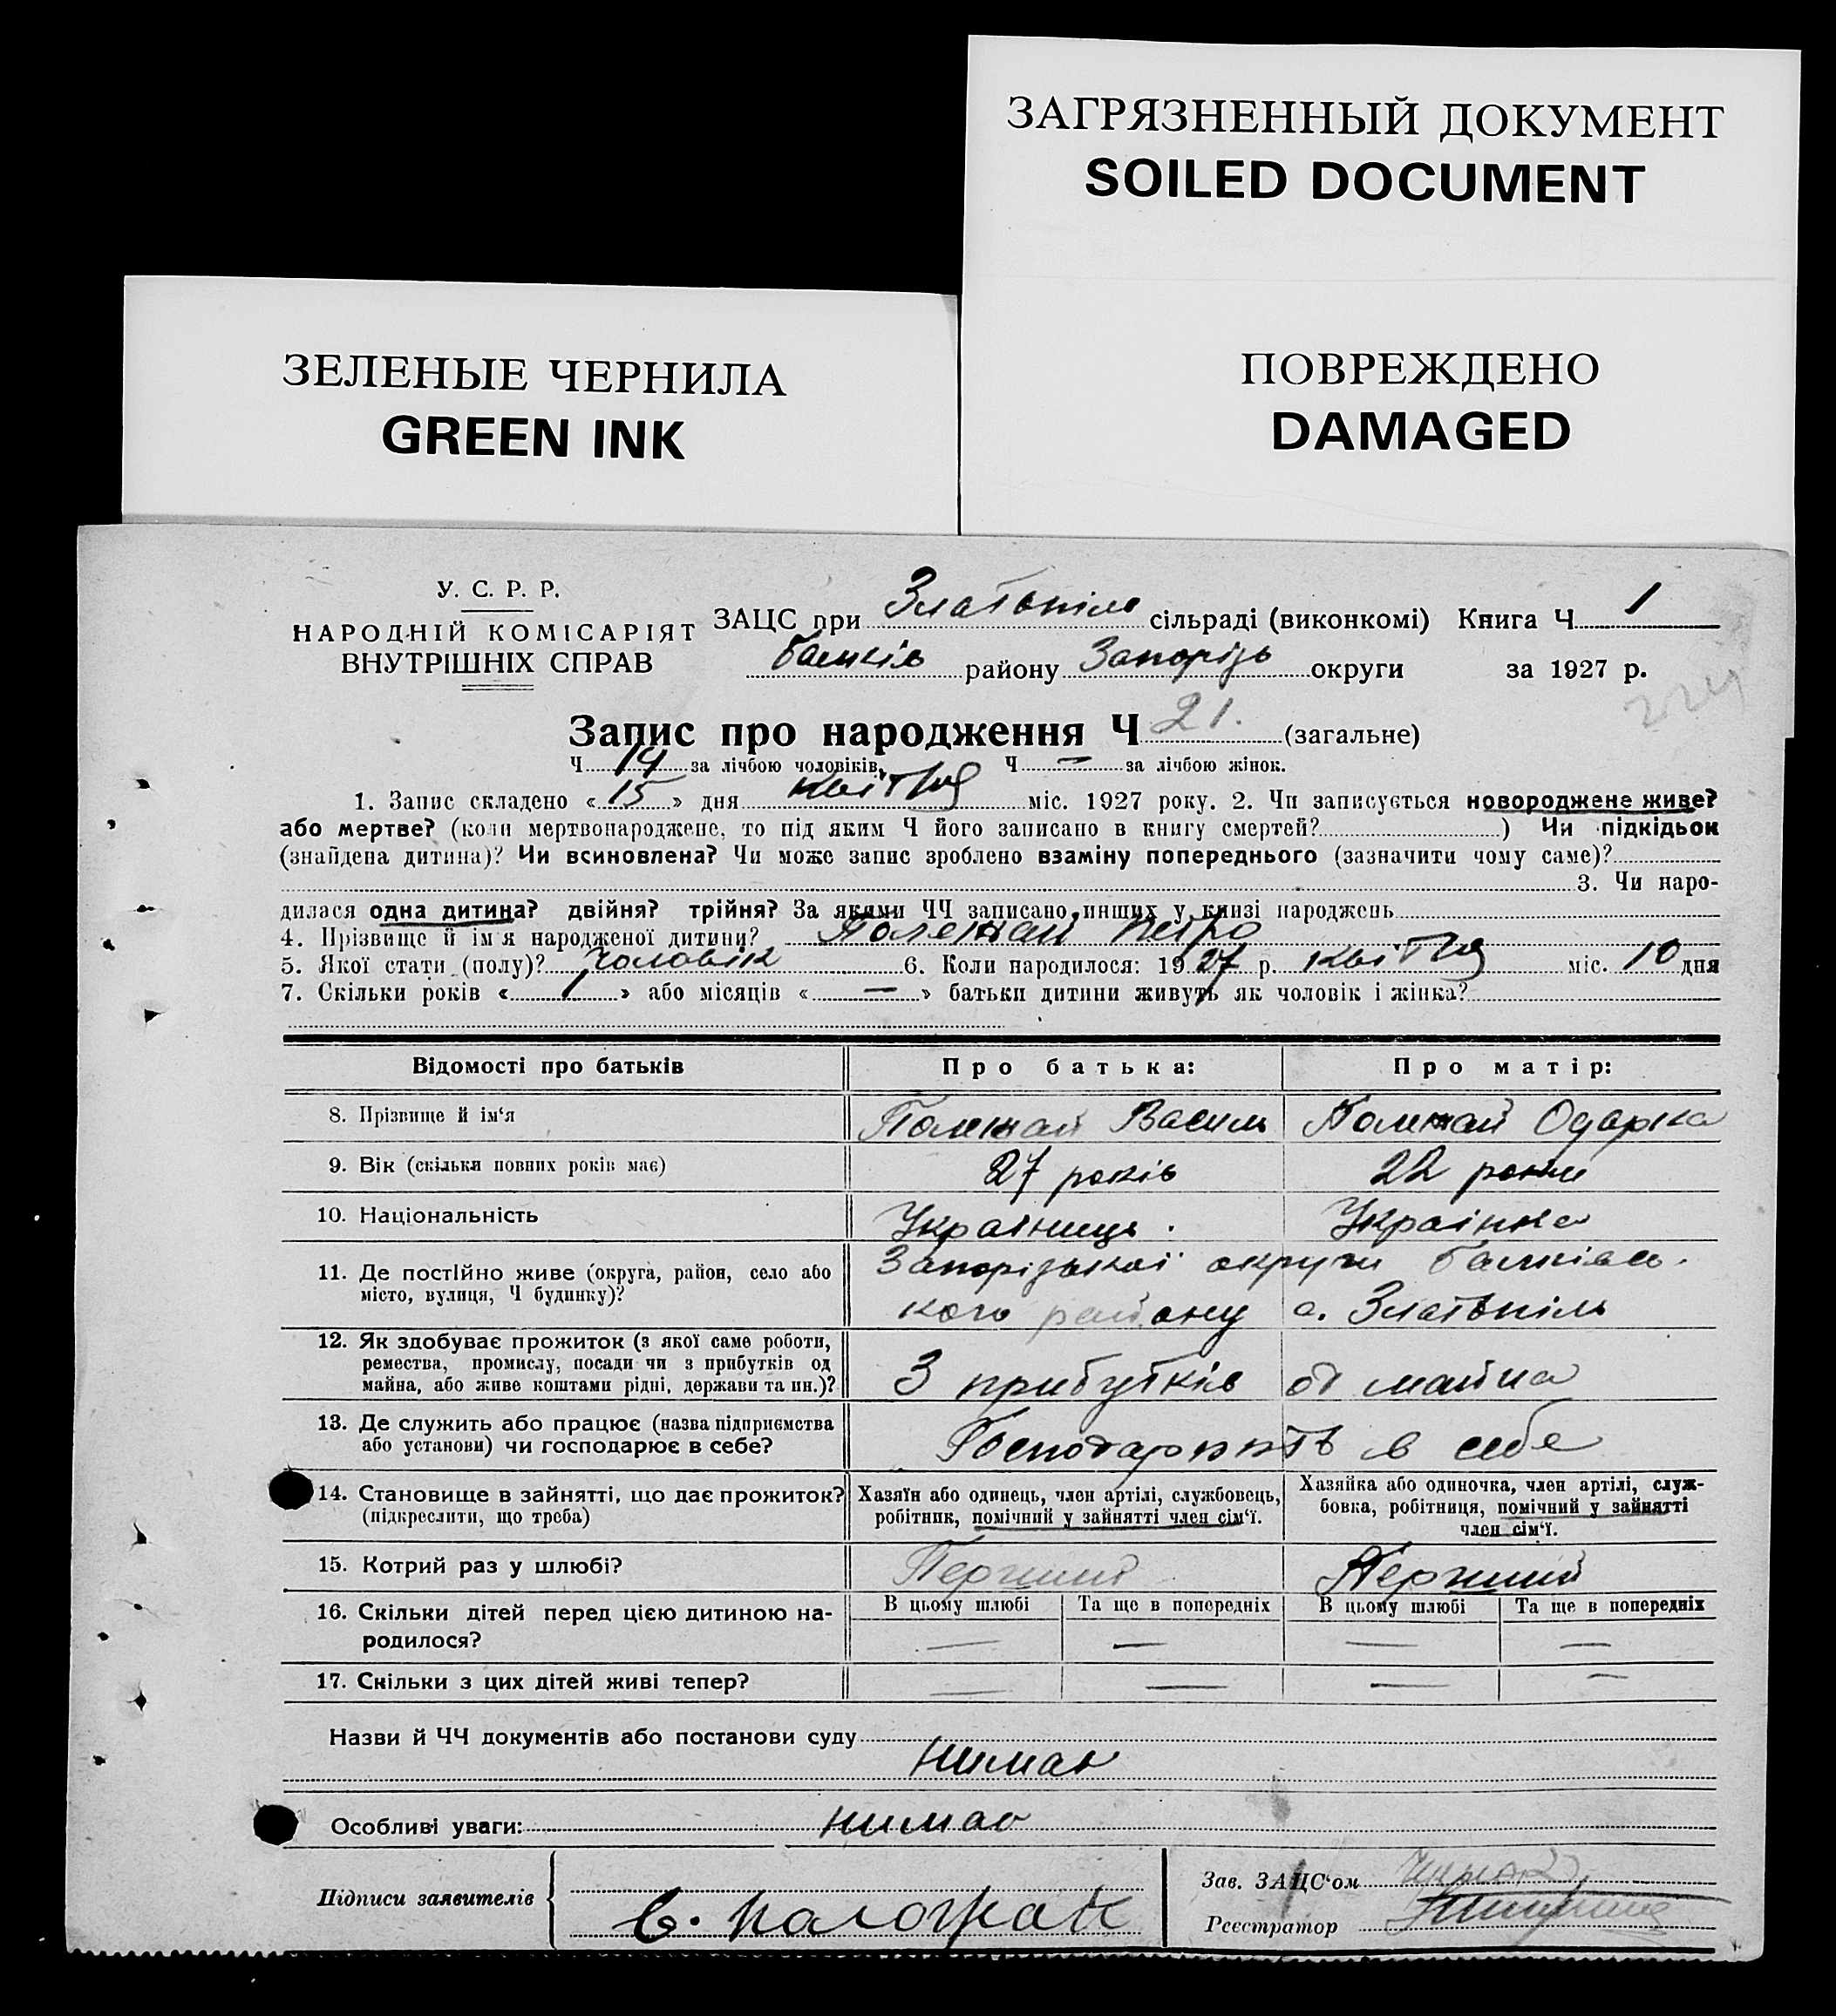 ЗАГРЯЗНЕННЫЙ ДОКУМЕНТ
SOILED DOCUMENT
ЗЕЛЕНЫЕ ЧЕРНИЛА
GREEN INK
ПОВРЕЖДЕНО
DAMAGED
У. С. Р. Р.
НАРОДНІЙ КОМІСАРІЯТ
ВНУТРІШНІХ СПРАВ
ЗАЦС при Златопіль сільраді (виконкомі) Книга Ч 1
Балків району Запорізь округи за 1927 р.
Запис про народження Ч 21. (загальне)
Ч 14 за лічбою чоловіків, Ч — за лічбою жінок.
1. Запис складено « 15 » дня квітня міс. 1927 року. 2. Чи записується новороджене живе?
або мертве? (коли мертвонароджене, то під яким Ч його записано в книгу смертей? ) Чи підкідьок
(знайдена дитина)? Чи всиновлена? Чи може запис зроблено взаміну попереднього (зазначити чому саме)?
3. Чи наро-
дилася одна дитина? двійня? трійня? За якими ЧЧ записано инших у книзі народжень
4. Прізвище й ім'я народженої дитини? Петро
5. Якої стати (полу)? Чоловік 6. Коли народилося: 1927 р. квітня міс. 10 дня
7. Скільки років « 1 » або місяців « — » батьки дитини живуть як чоловік і жінка?
Відомості про батьків Про батька: Про матір:
8. Прізвище й ім'я Василь Одарка
9. Вік (скільки повних років має) 27 років 22 роки
10. Національність Українець. Українка
11. Де постійно живе (округа, район, село або
місто, вулиця, Ч будинку)?
Запорізької округи Балківсь-
кого району с. Златопіль
12. Як здобуває прожиток (з якої саме роботи,
ремества, промислу, посади чи з прибутків од
майна, або живе коштами рідні, держави та ин.)?
З прибутків од майна
13. Де служить або працює (назва підприємства
або установи) чи господарює в себе?
в себе
14. Становище в зайнятті, що дає прожиток?
(підкреслити, що треба)
Хазяїн або одинець, член артілі, службовець,
робітник, помічний у зайнятті член сім'ї.
Хазяйка або одиночка, член артілі, служ-
бовка, робітниця, помічний у зайнятті
член сім'ї.
15. Котрий раз у шлюбі? Перший Перший
16. Скільки дітей перед цією дитиною на-
родилося?
В цьому шлюбі Та ще в попередніх В цьому шлюбі Та ще в попередніх
— — — —
17. Скільки з цих дітей живі теперʼ? — — — —
Назви й ЧЧ документів або постанови суду
нимає
Особливі уваги: нимає
Підписи заявителів
Зав. ЗАЦС'ом
Реєстратор